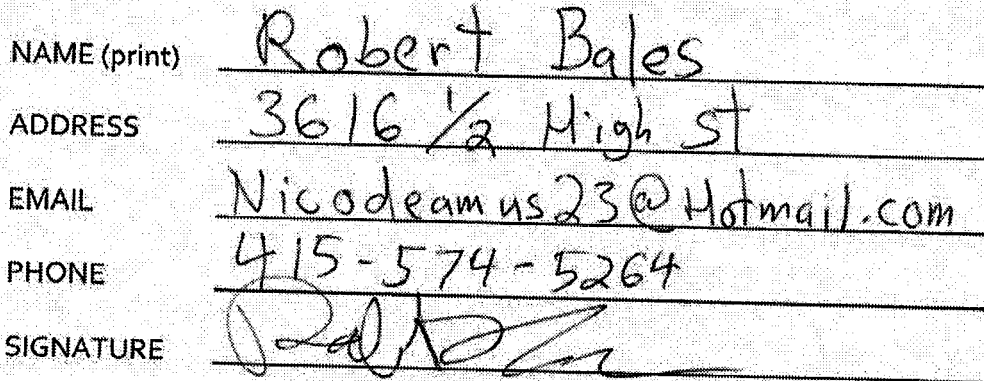 NAME (print) Robert Bales
ADDRESS 3616 1/2 High st
EMAIL Nicodeamus23@Hotmail.com
PHONE 415-574-5264
SIGNATURE